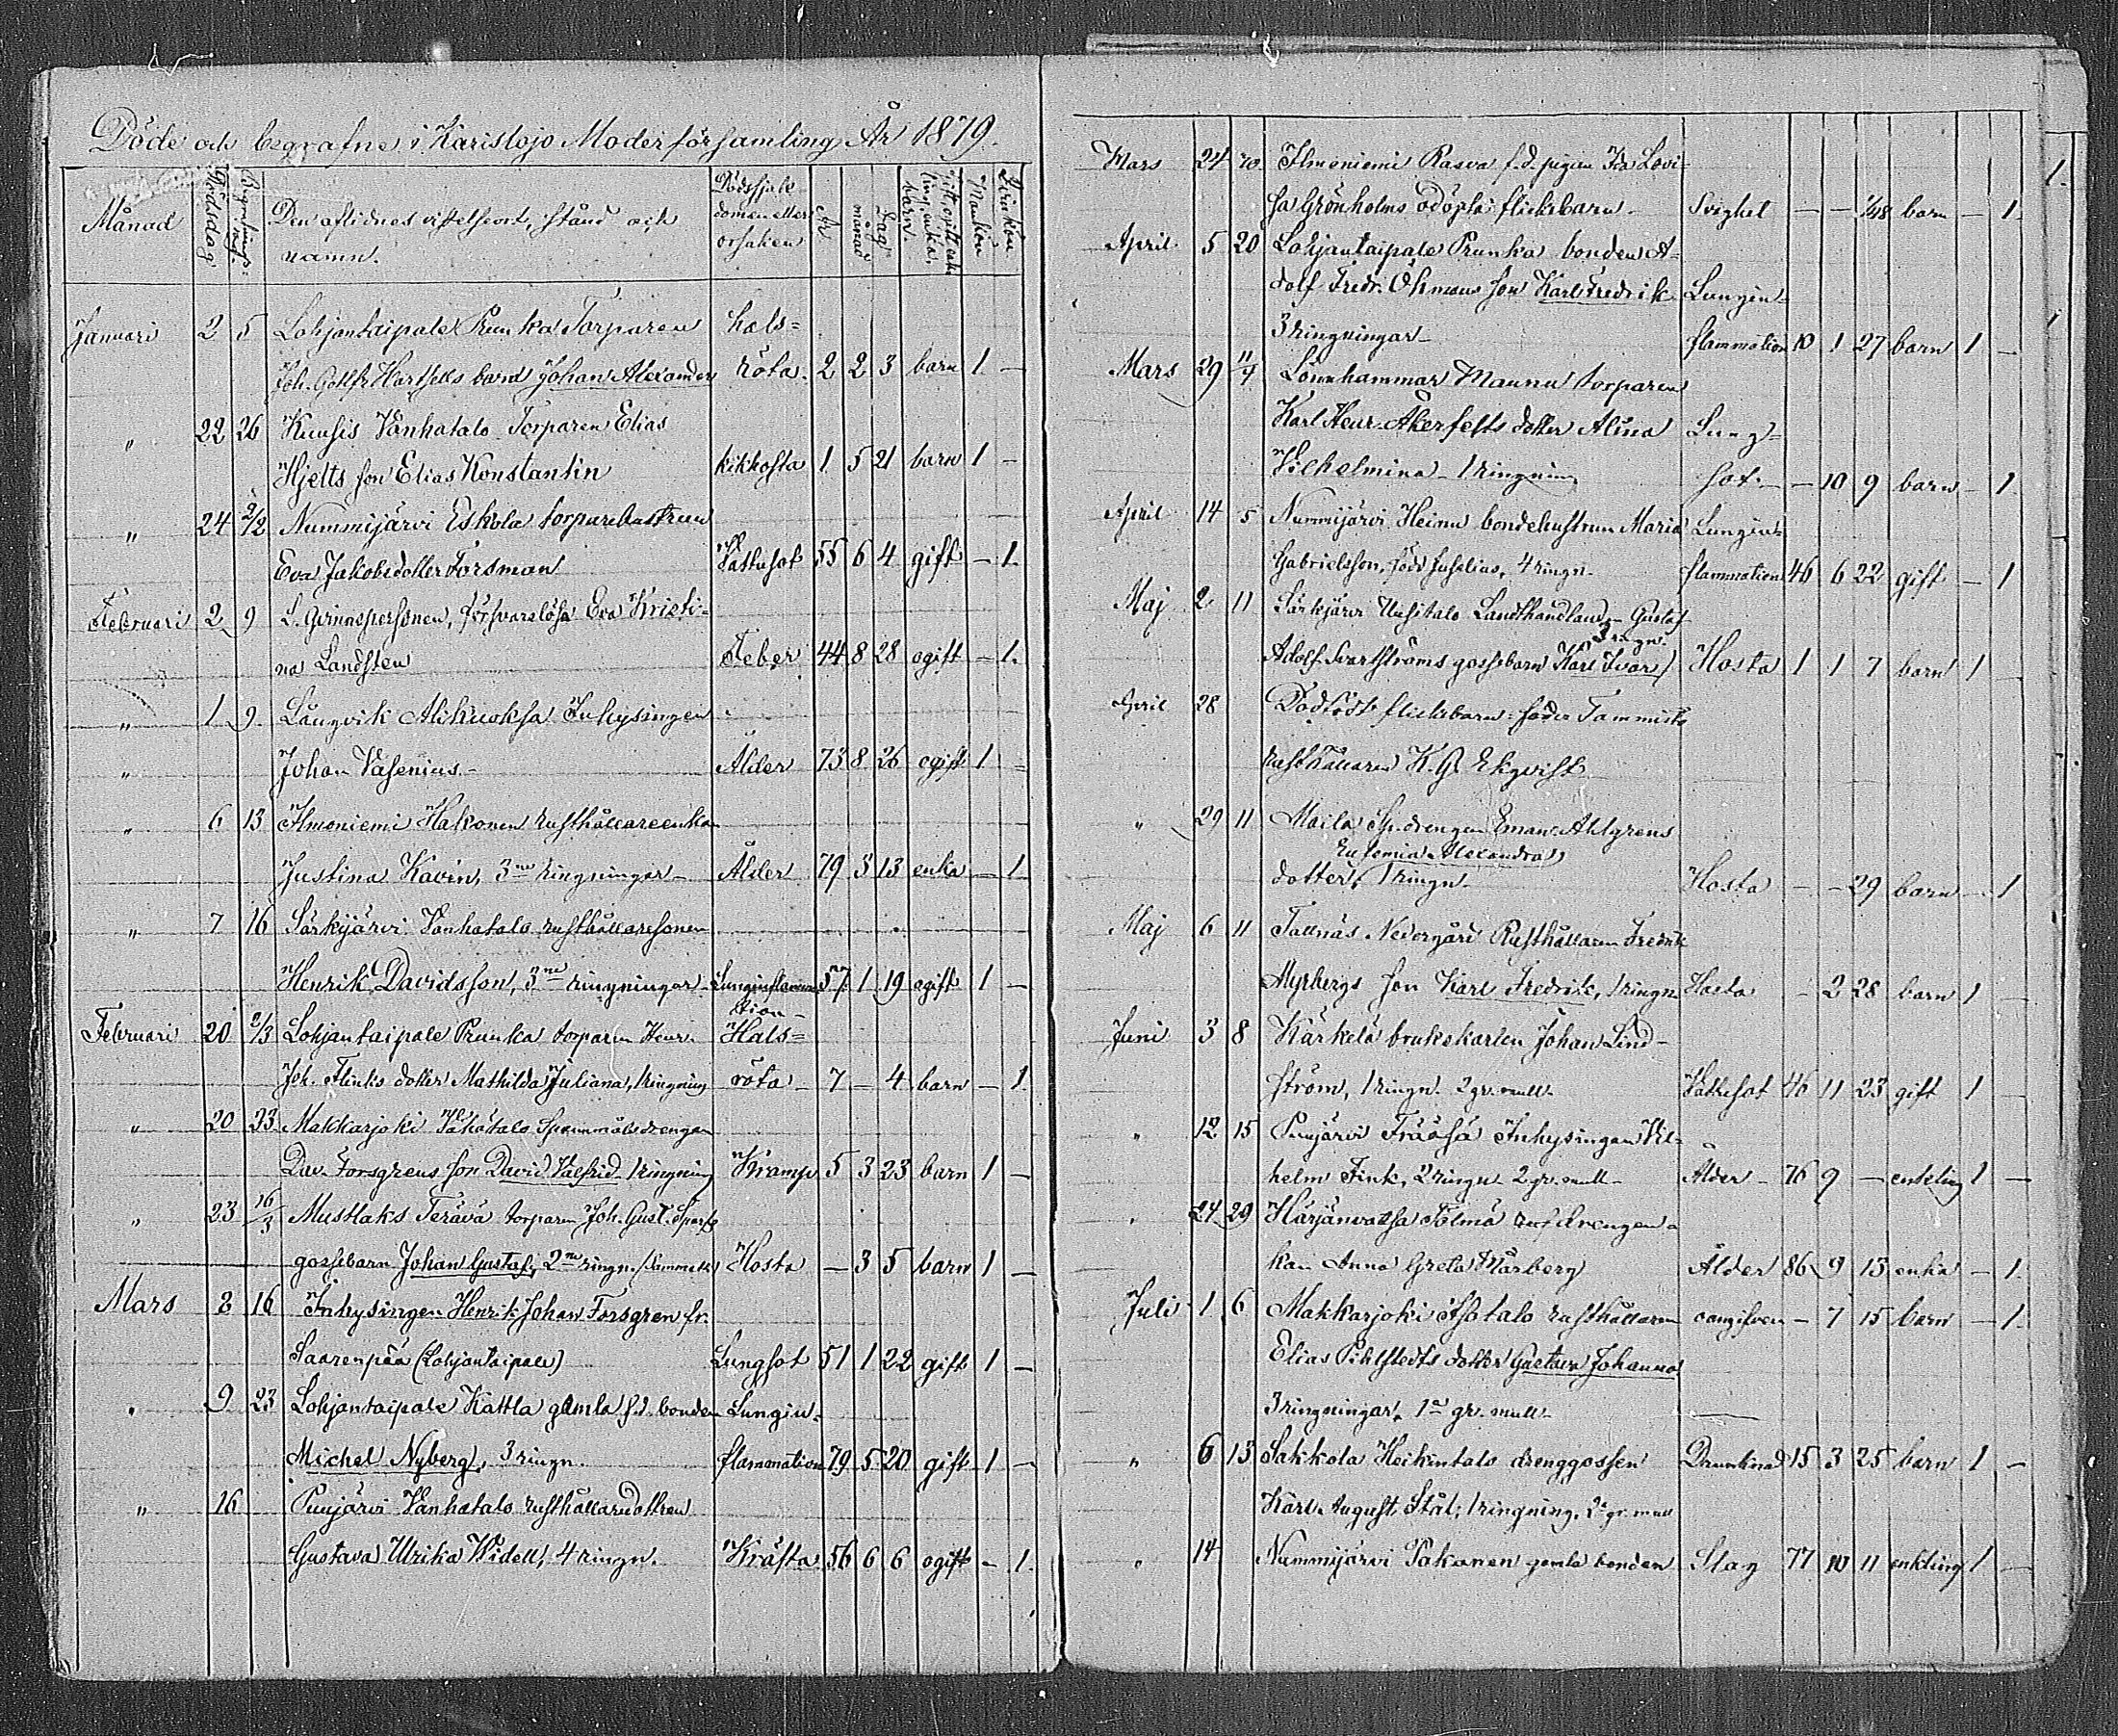 Döde och begrafne i Karislojo Moderförsamling År 1879.
Månad Dödsdag Begrafnings- Den aflidnes vistelseort, stånd och namn. Dödssjuk- domen eller orsaken År månad Dag Mankön Qvinkön
Januari 2 5 Lohjantaipale Prunka Torparen Hals=
Joh. Gottfr. Hartfelts barn Johan Alexander röta. 2 2 3 barn 1 –
" 22 26 Kuusia Vanhatalo Torparen Elias
Hjelts son Elias Konstantin kikhosta 1 5 21 barn 1 –
" 24 2/2 Nummijärvi Eskola torparehustrun
Eva Jakobsdotter Forsman Vattusot 55 6 4 gift – 1.
Februari 2 9 försvarslösa Eva Kristi=
na Landsten Feber 44 8 28 ogift – 1.
" 1 9 Långvik Alikuoksa Inhysingen
" Johan Vasenius – Ålder 73 8 26 ogift 1 –
" 6 13 Ilmoniemi Hakonen rusthållareenkan
Justina Kavén, 3ne ringningar – Ålder 79 3 13 enka – 1
" 7 16 Särkijärvi Vanhatalo rusthållaresonen
Henrik Davidsson, 3ne ringningar – Lunginflamma 57 1 19 ogift 1 –
tion –
Februari 20 2/3 Lohjantaipale Prunka torparen Henr. Hals=
Joh. Flinks dotter Mathilda Juliana, 1 ringning röta – 7 – 4 barn – 1.
" 20 23 Makkarjoki Vähätalo Spannmålsdrengen
Dav. Forsgrens son David Valfrid 1 ringning Kramp 5 3 23 barn 1 –
" 23 16/3 Mustlaks Terävä torparen Joh. Gust.
gossebarn Johan Gustaf, 2ne ringn. Hosta – 3 5 barn 1 –
Mars 2 16 Inhysingen Henrik Johan Forsgren fr.
Saarenpää (Lohjantaipale) Lungsot 51 1 22 gift 1 –
" 9 23 Lohjantaipale Kattla gamla f.d. bonden Lungin=
Michel Nyberg, 3 ringn. flammation 79 5 20 gift 1 –
" 16 Puujärvi Vanhatalo rusthållaredottren
Gustava Ulrika Widell, 4 ringn. Kräfta 56 6 6 ogift – 1.
Mars 24 Ilmoniemi Rasva f.d. pigan Ida Lovi-
sa Grönholms odöpta flickebarn – – – barn – 1.
April 5 20 Lohjantaipale Prunka bonden A-
dolf Fredr. Öhmans son Karl Fredrik Lungin-
3 ringningar – flammation 10 1 27 barn 1 –
Mars 29 11/4 Lönnhammar Maunu torparen
Karl Henr. Åkerfelts dotter Alina Lung-
Vilhelmina – 1 ringning sot. – 10 9 barn – 1.
April 14 5 Nummijärvi Heimo bondehustrun Maria Lungin-
Gabrielsson, född Juselius, 4 ringn. flammation 46 6 22 gift – 1
Maj 2 11 Särkijärvi Uusitalo Landthandland. Gustaf
3 ringn.
Adolf Svartströms gossebarn Karl Ivar Hosta 1 1 7 barn 1 –
April 28 Dödfödt flickebarn: fader Tammisto
rusthållaren K. G. Ekqvist
" 29 11 Maila Sp. drengen Eman. Ahlgrens
Eufemia Alexandra
dotter, 1 ringn. Hosta – – 29 barn – 1
Maj 6 11 Tallnäs Nedergård Rusthållaren Fredrik
Myrbergs son Karl Fredrik, 1 ringn. Hosta – 2 28 barn 1 –
Juni 3 8 Kärkelä brukskarlen Johan Lind-
ström, 1 ringn. 2 gr. mull. Vattusot 46 11 23 gift 1 –
" 12 15 Puujärvi Inhysingen Vil-
helm Fink, 2 ringn. 2 gr. mull – Ålder – 76 9 – enkling 1 –
" 24 29 Härjänvatsa Tolmä
kan Anna Greta Ålder 86 9 13 enka – 1.
Juli 1 6 Makkarjoki Isotalo rusthållaren oangifven – 7 15 barn – 1.
Elias Pihlstedts dotter Gustava Johanna
3 ringningar, 1 gr. mull –
" 6 13 Sakkola Heikintalo drenggossen Drunknad 15 3 25 barn 1 –
Karl August Stål, 1 ringning, 2 gr. mull
" 14 Nummijärvi Pakanen gamla bonden Slag 77 10 11 enkling 1 –